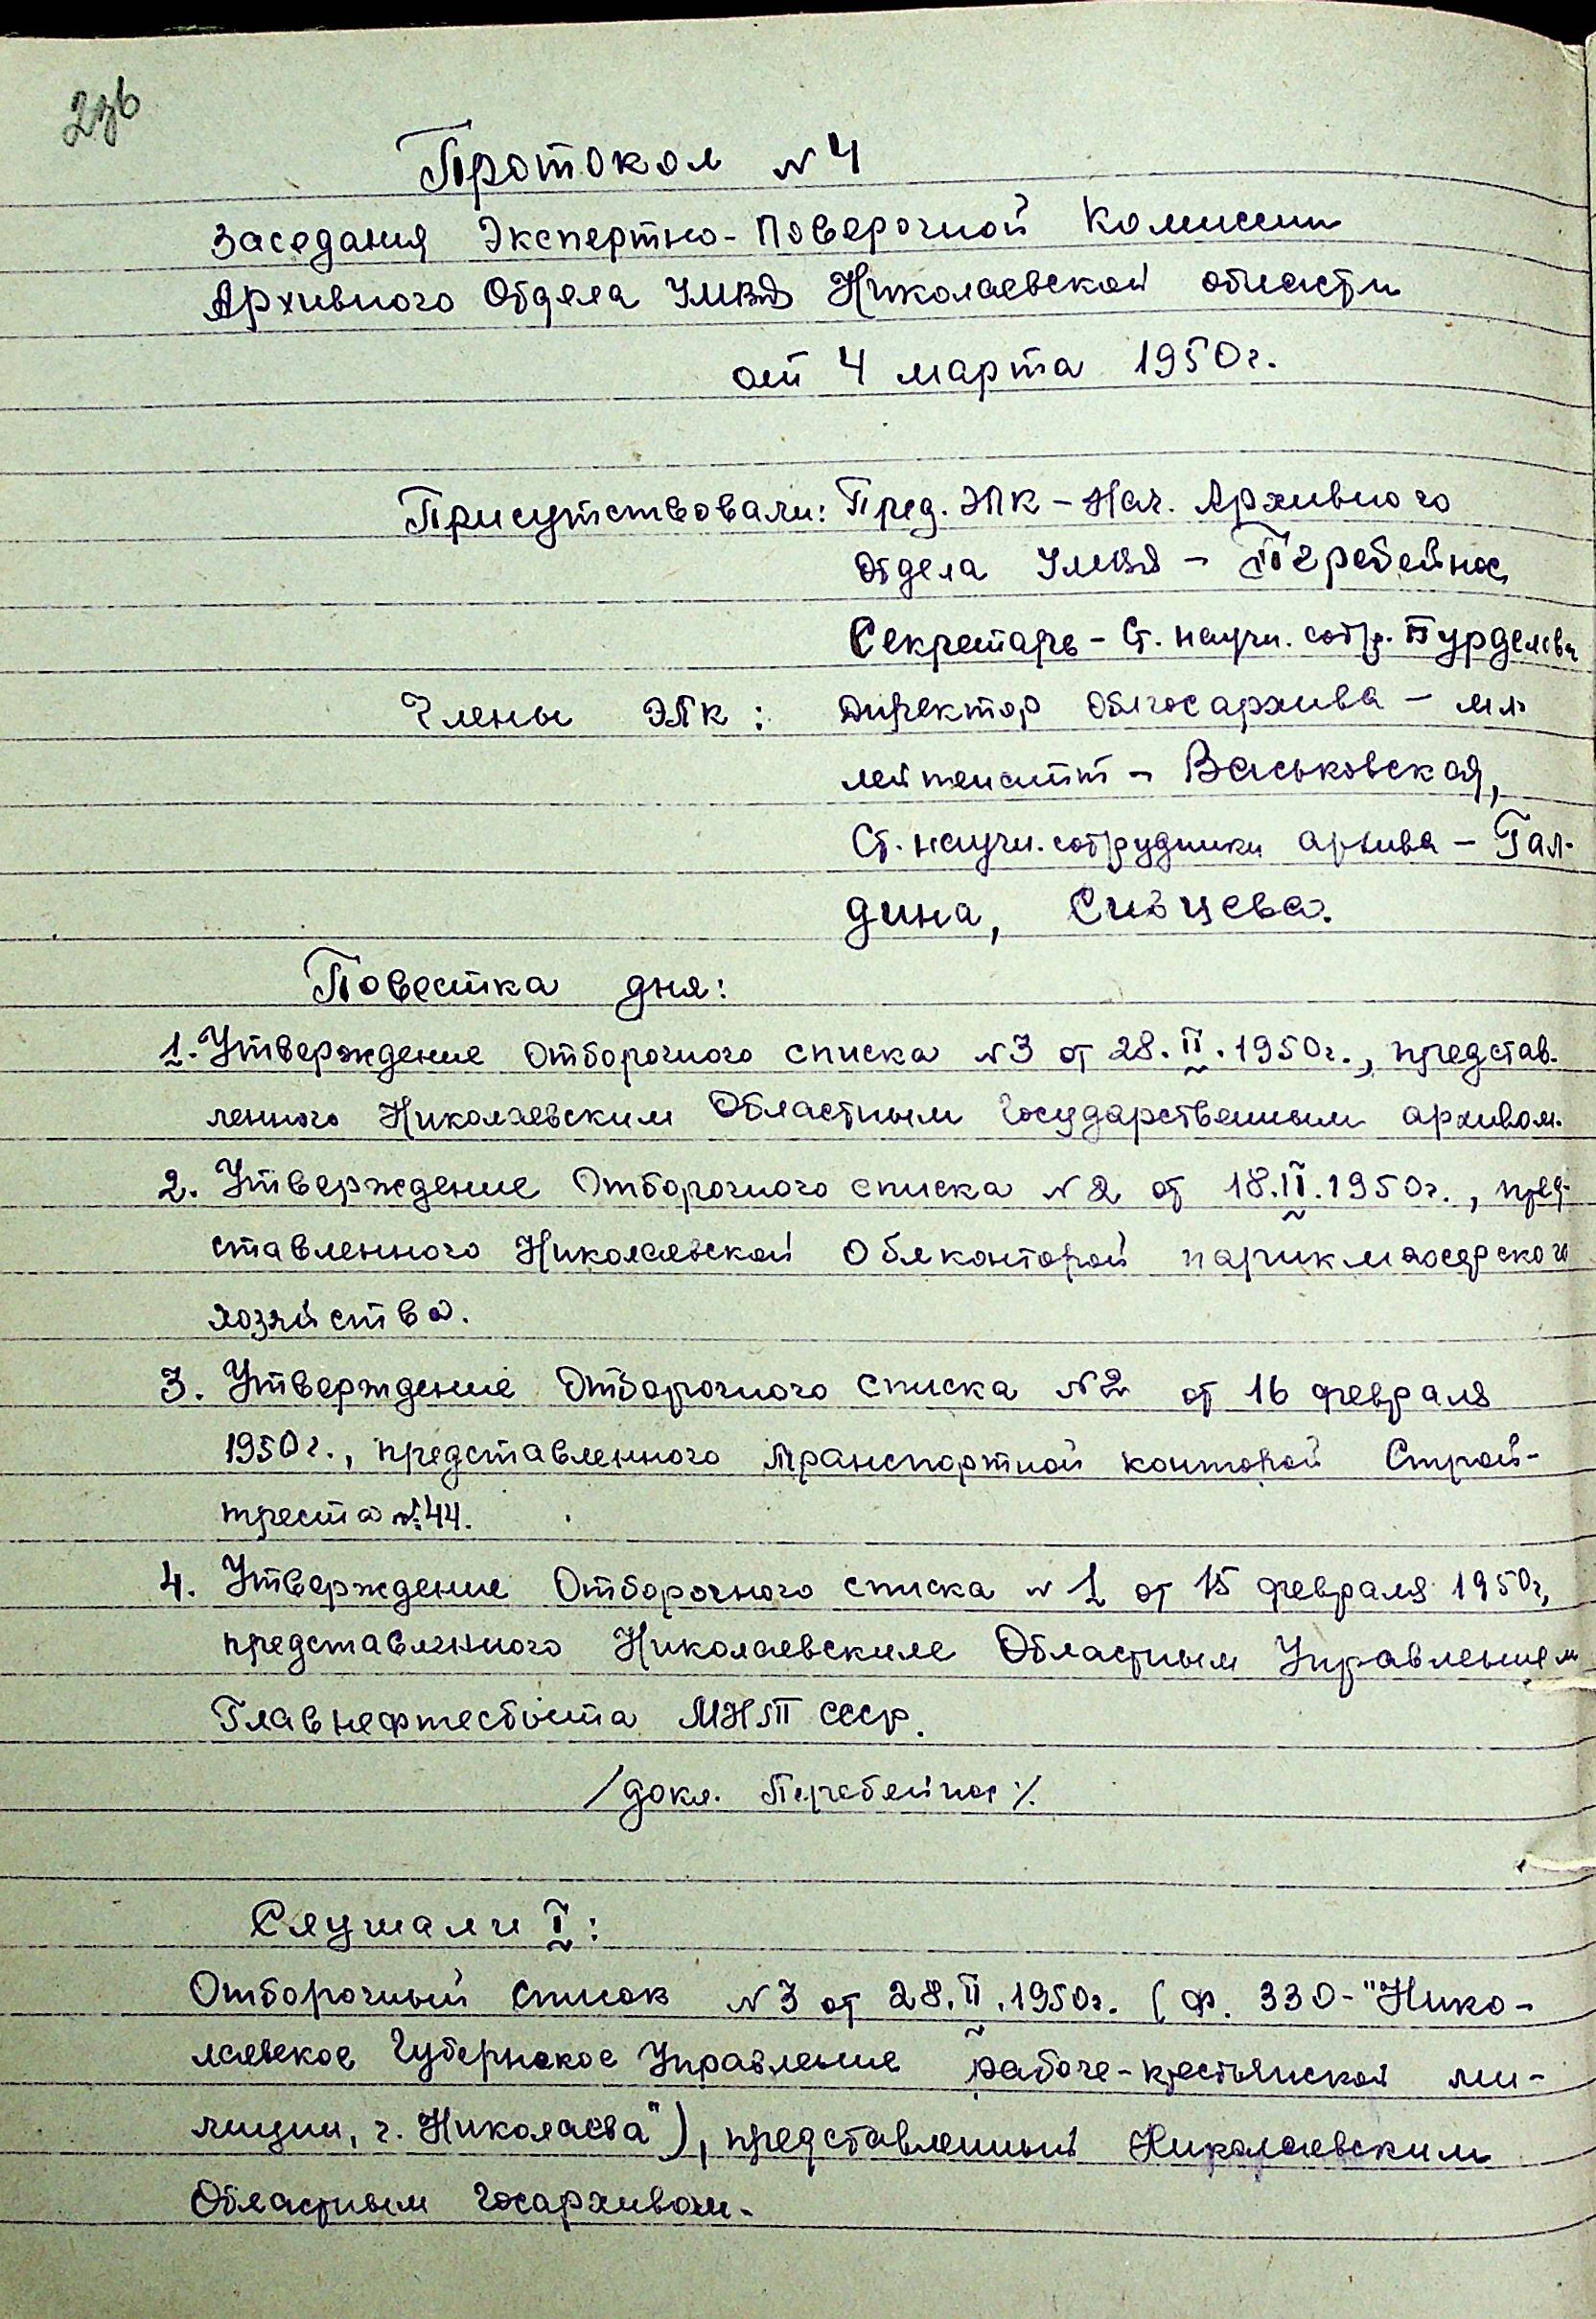 Протокол №4
заседания Экспертно-Поверочной Комиссии
Архивного Отдела УМВД Николаевской области
от 4 марта 1950г.
Присутствовали: Пред. ЭПК – Нач. Архивного
Отдела УМВД – Перебейнос,
Секретарь – Ст. научн. сотр.
Члены ЭПК: Директор Облгосархива – мл.
лейтенант – Васьковская,
Ст. научн. сотрудники архива – Гал-
дина, Сивцева.
Повестка дня:
1. Утверждение Отборочного списка №3 от 28.II.1950г., представ-
ленного Николаевским Областным Государственным архивом.
2. Утверждение Отборочного списка №2 от 18.II.1950г., пред-
ставленного Николаевской Облконторой парикмахерского
хозяйства.
3. Утверждение Отборочного списка №2 от 16 февраля
1950г., представленного транспортной конторой Строй-
треста №44.
4. Утверждение Отборочного списка №1 от 15 февраля 1950г,
представленного Николаевским Областным Управлением
Главнефтесбыта МНП СССР.
/докл. Перебейнос/.
Слушали I:
Отборочный список №3 от 28.II.1950г. (ф. 330-"Нико-
лаевское Губернское Управление рабоче-крестьянской ми-
лиции, г. Николаева"), представленный Николаевским
Областным Госархивом.